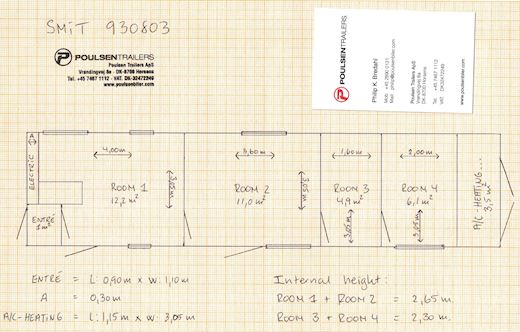 SMIT 930803
POULSENTRAILERS
Poulsen Trailers ApS
Vrøndingvej 8a · DK-8700 Horsens
Tel. +45 7467 1112 · VAT. DK-32472249
www.poulsenbiler.com
POULSENTRAILERS
Philip K. Bredahl
Poulsen Trailers ApS
Vrøndingvej 8a
DK-8700 Horsens
Tel. +45 7467 1112
VAT. DK-32472249
www.poulsenbiler.com
A
ELECTRIC
4,00m
3,60m
1,60m
2,00m
ROOM 1
12,2 m²
3,05m
ROOM 2
11,0 m²
3,05m
ROOM 3
4,9 m²
3,05m
ROOM 4
6,1 m²
3,05m
A/C-HEATING...
3,5 m²
ENTRÉ
1 m²
ENTRÉ = L: 0,90m x W: 1,10m
A = 0,30m
A/C-HEATING = L: 1,15m x W: 3,05m
Internal height:
ROOM 1 + ROOM 2 = 2,65m.
ROOM 3 + ROOM 4 = 2,30m.